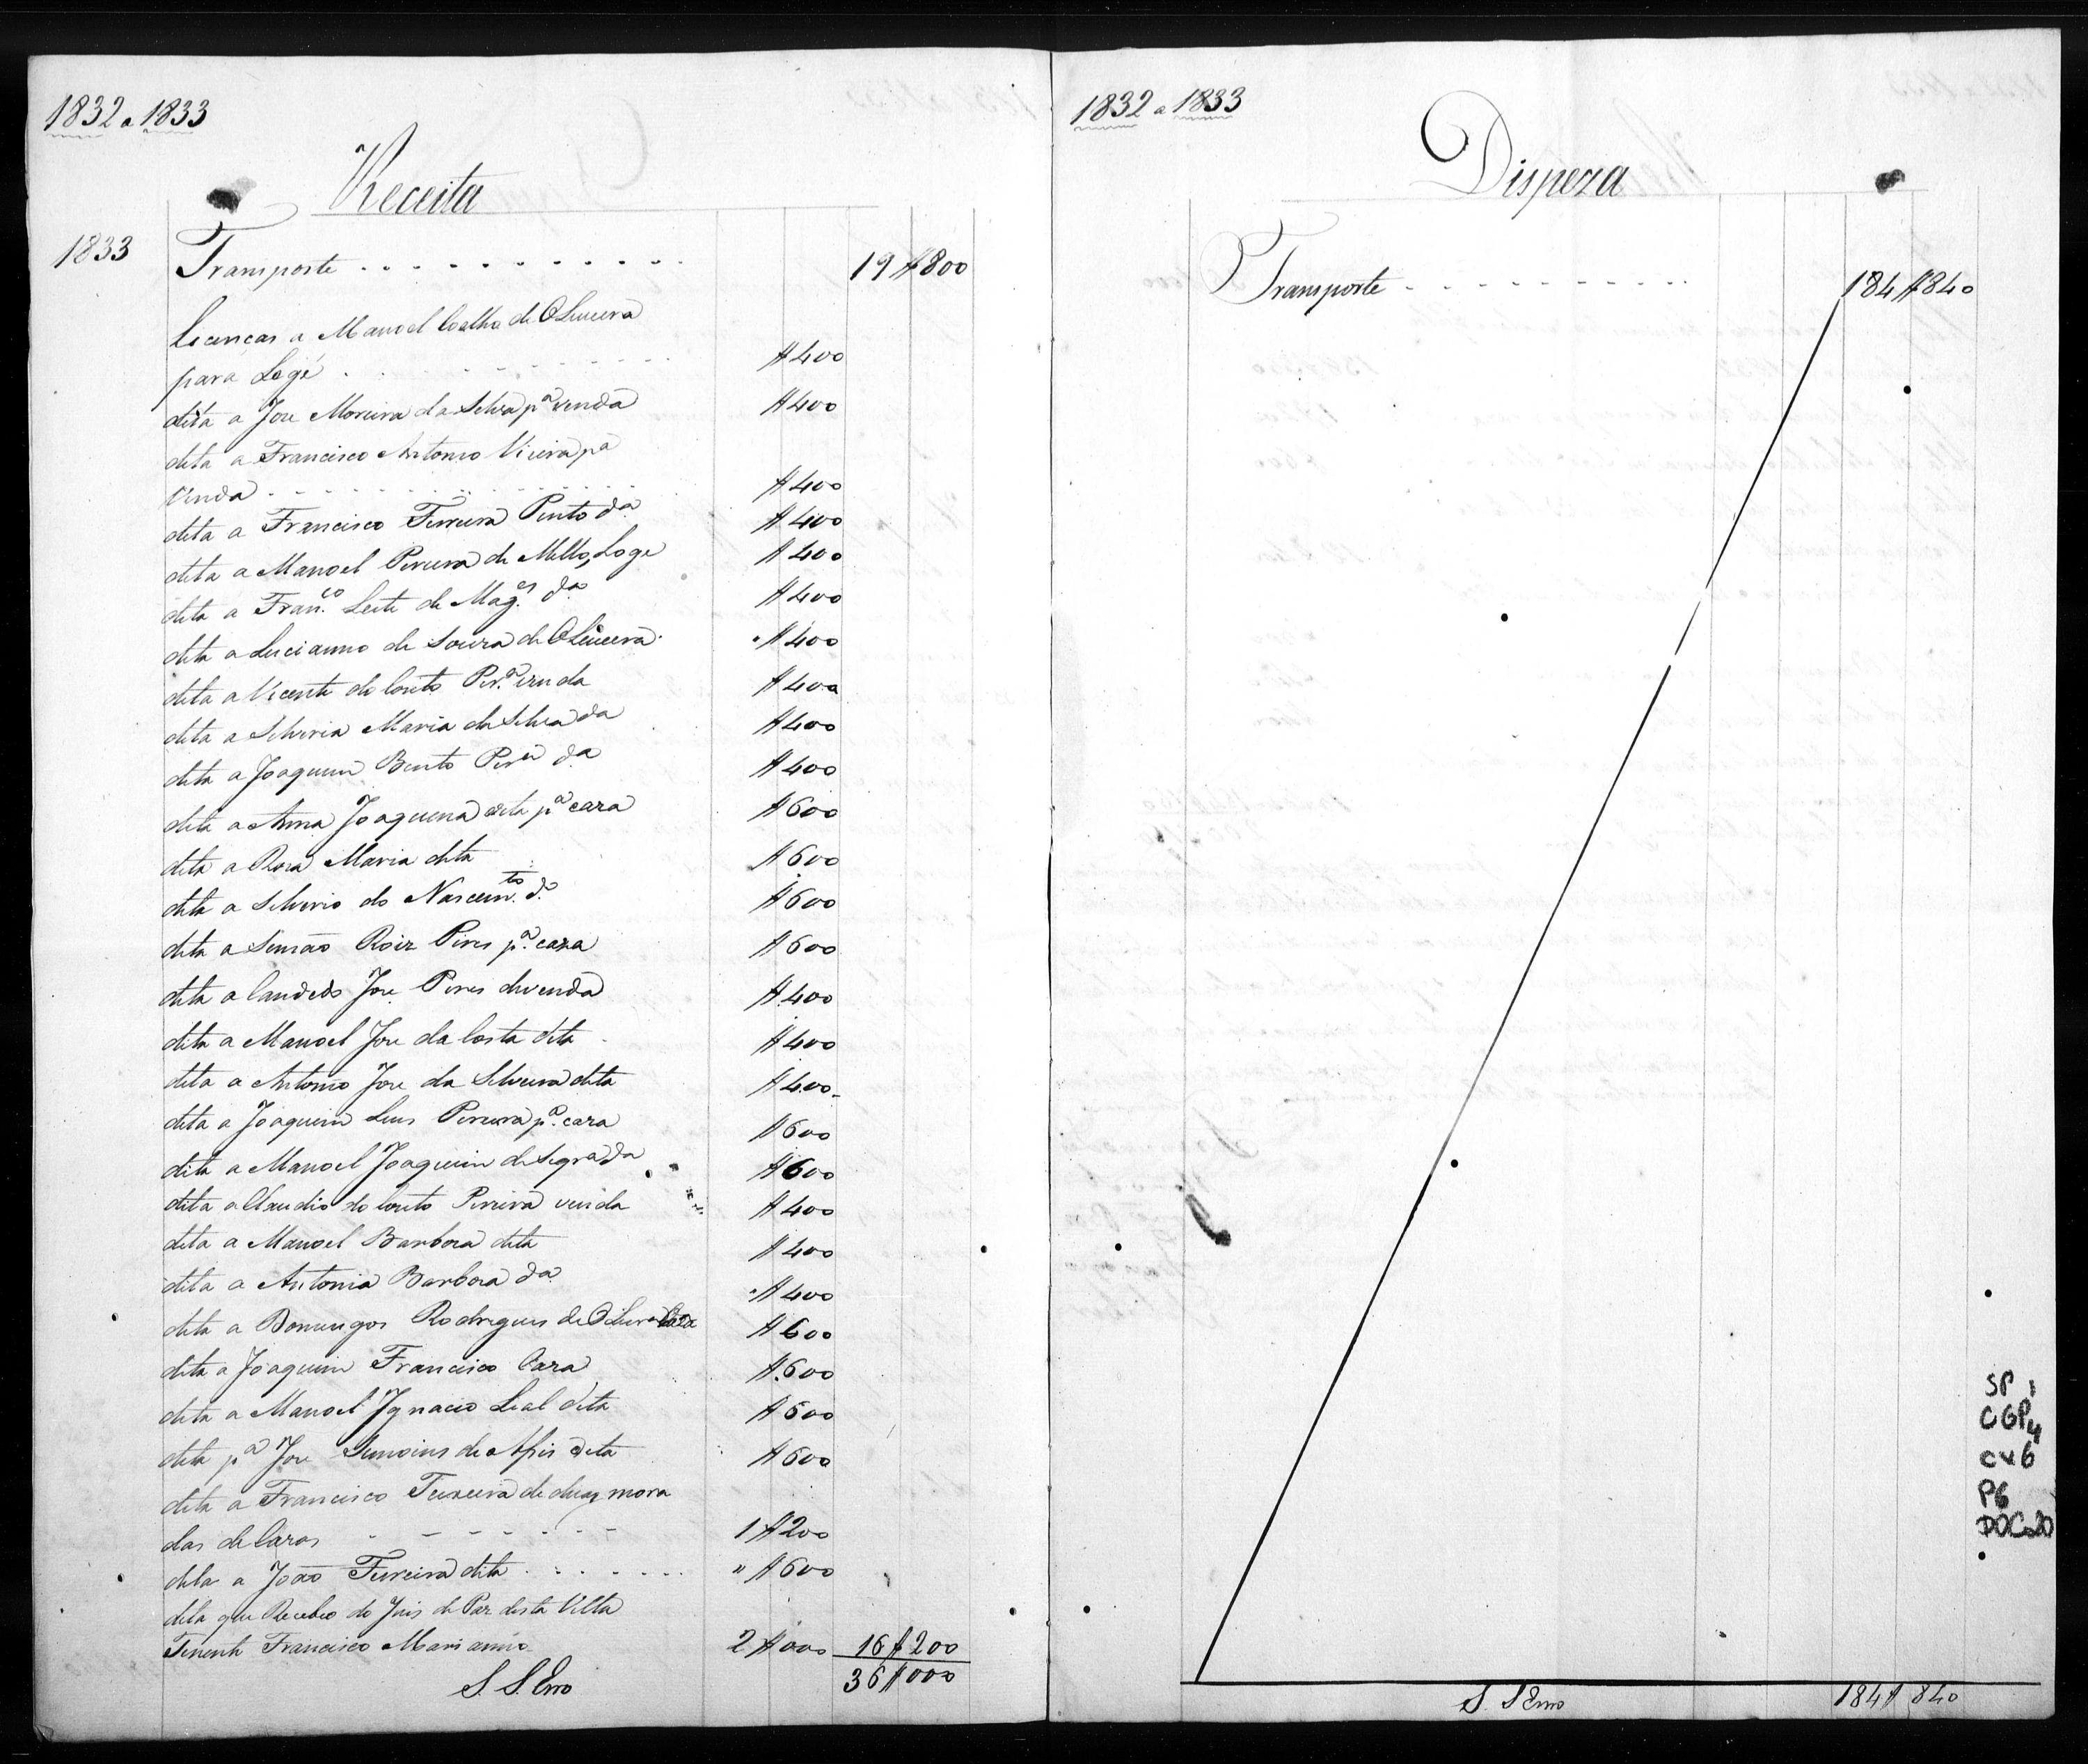 1832 a 1833
Receita
1833
Transporte . . . . . . . . . . . . 19$800
Licenças a Manoel Coelho de Oliveira
para Loge . . . . . . . . $400
dita a Joze Moreira da Silva pª venda $400
dita a Francisco Antonio Vieira pª
Venda . . . . . . . . . . $400
dita a Francisco Ferreira Pinto dª $400
dita a Manoel Pereira de Mello, Loge $400
dita a Fran.co Leite de Mag.es dª $400
dita a Lucianno de Souza de Oliveira $400
dita a Vicente do Couto Per.ª venda $400
dita a Silveria Maria da Silva da $400
dita a Joaquim Bento Perª dª $400
dita a Anna Joaquina dita pª caza $600
dita a Roza Maria dita $600
dita a Silverio do Nascim.to dº $600
dita a Simão Roiz Pires pª. caza $600
dita a Candido Joze Pires de venda $400
dita a Manoel Joze da Costa dita $400
dita a Antonio Joze da Silveira dita $400
dita a Joaquim Luis Pereira pª. caza $600
dita a Manoel Joaquim de da $600
dita a Claudio do Couto Pereira venda $400
dita a Manoel Barboza dita $400
dita a Antonia Barboza da $400
dita a Domingos Rodrigues de Olivrª Caza $600
dita a Joaquim Francisco Caza $600
dita a Manoel Ignacio Leal dita $600
dita pª Joze de Assis dita $600
dita a Francisco Teixeira de duas mora
das de Cazas - - - - - - 1$200
dita a João Ferreira dita . . . . . . " $600
dita que Recebeo do Juis de Paz desta Villa
Tenente Francisco Marianno 2$000 16$200
S. S. Erro 36$000
1832 a 1833
Dispeza
Transporte - - - - - - - - - - 184$840
S. S Erro 184$840
SP 1
CGP4
cx6
P6
DOC20